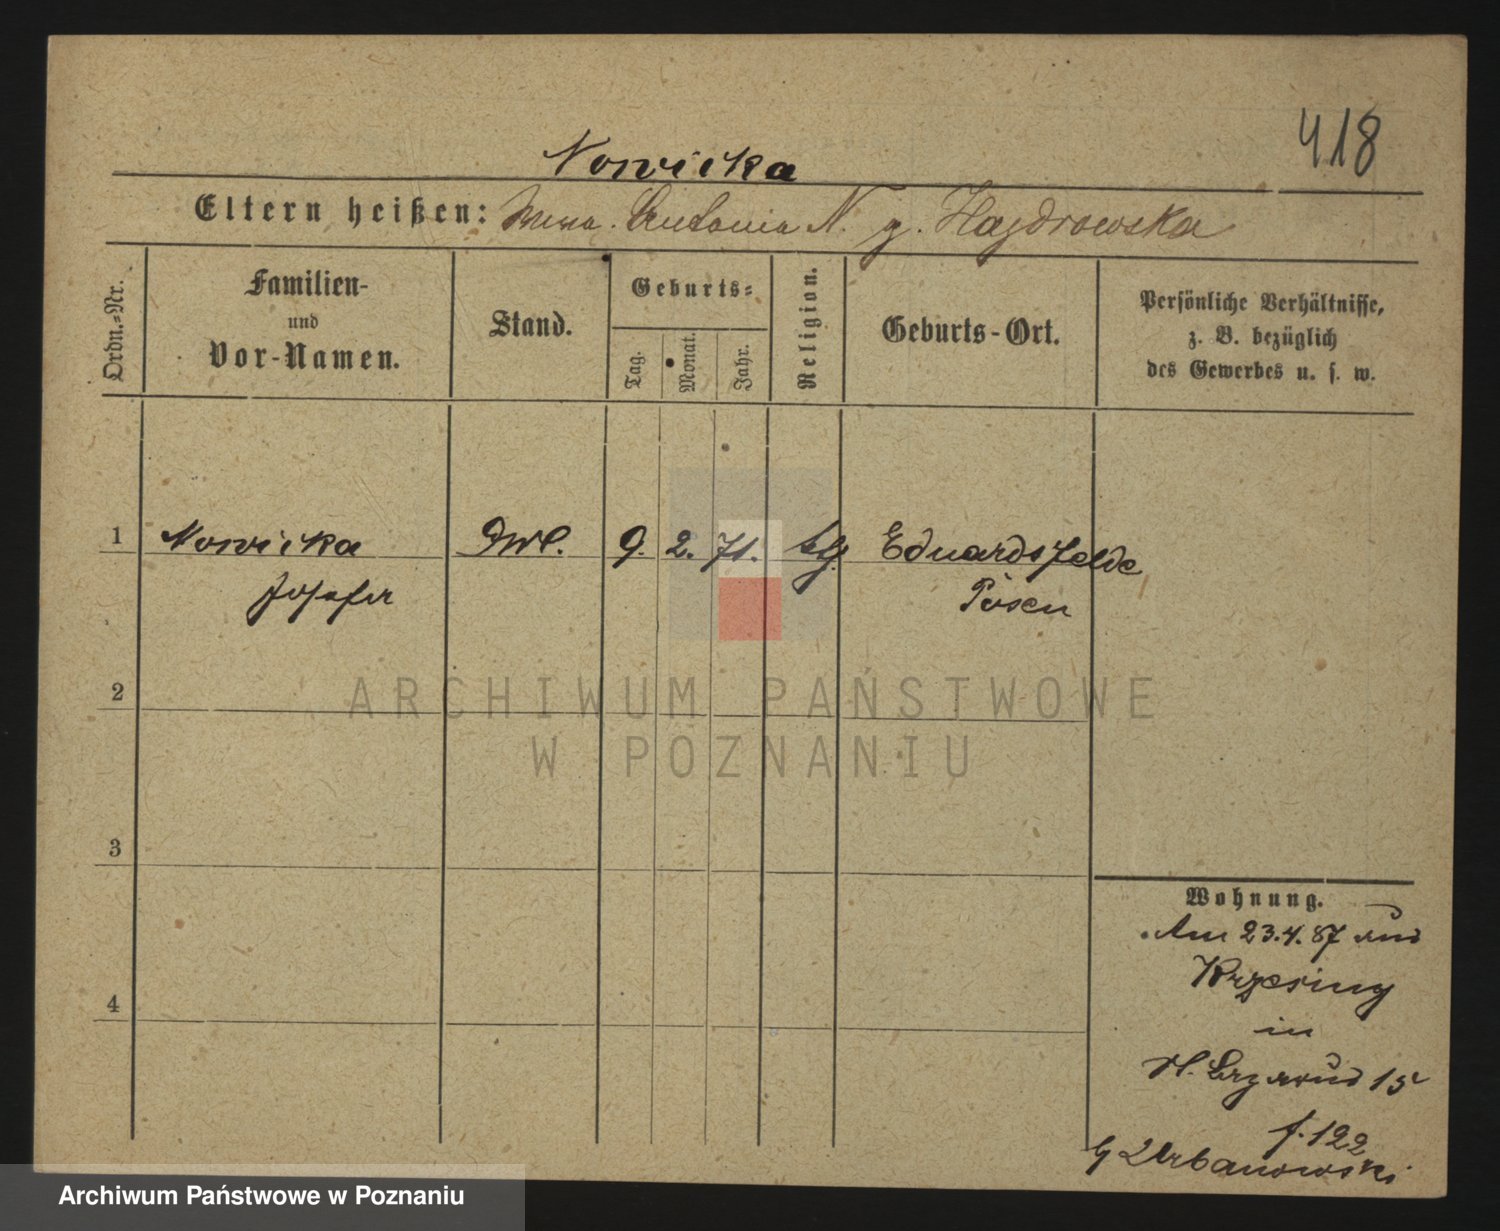 418
Nowicka
Eltern heißen: Wwe. Antonia N. g. Hajdrowska
Ordn.-Nr.
Familien-
und
Vor-Namen.
Stand.
Geburts-
Tag.
Monat.
Jahr.
Religion.
Geburts-Ort.
Persönliche Verhältnisse,
z. B. bezüglich
des Gewerbes u. s. w.
1 Nowicka 9. 2. 71. Eduardsfelde
Josefa Posen
2
3
4
Wohnung.
Am 23.4.87 aus
Krzesiny
in
15
f. 122
Urbanowski
ARCHIWUM PAŃSTWOWE
W POZNANIU
Archiwum Państwowe w Poznaniu